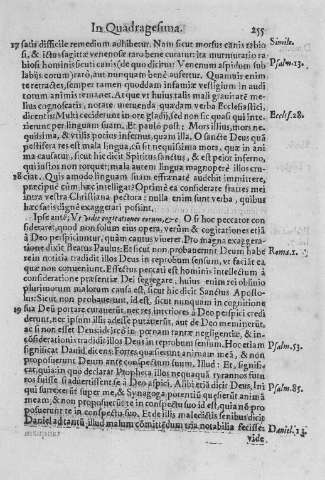 In Quadragesima. 255
17 satis difficile remedium adhibetur. Nam sicut morsus canis rabio
si, & ictus sagittæ venenosæ raro bene curantur: ita murmuratio ra
biosi hominis sicuti canis (de quo dicitur: Venenum aspidum sub
labijs eorum) raro, aut nunquam benè aufertur. Quamuis enim
te retractes, semper tamen quoddam infamiæ vestigium in audi
torum animis remanet. Atque vt huius talis mali grauitatē me-
lius cognoscatis, notate verenda quædam verba Ecclesiastici,
dicentis: Multi ceciderunt in ore gladij, sed non sic quasi qui inte-
rierunt per linguam suam. Et paulo post: Mors illius, mors ne-
quissima, & vtilis potius infernus, quam illa. O sancte Deus quā
pestifera res est mala lingua, cū sit nequissima mors, quæ in ani
ma causatur, sicut hic dicit Spiritus sanctus, & est peior inferno,
qui iustos non torquet; mala autem lingua magnopere illos cru-
18 ciat. Quis amodo linguam suam effrænatē audebit immittere,
præcipuè cùm hæc intelligat? Optimè ea considerate fratres mei
intra vestra Christiana pectora: nulla enim sunt verba, quibus
hæc satis dignè exaggerari possint.
Ipse autē: Vt vidit cogitationes eorum, &c. O si hoc peccator con
sideraret, quod non solum eius opera, verùm & cogitationes etiā
à Deo perspiciuntur, quàm cautus viueret. Pro magna exaggera-
tione dicit Beatus Paulus: Et sicut non probauerunt Deum habe
re in notitia tradidit illos Deus in reprobum sensum, vt faciāt ea
quæ non conueniunt. Effectus peccati est hominis intellectum à
consideratione præsentiæ Dei segregare, huius enim rei obliuio
plurimorum malorum causa est, sicut hic dicit Sanctus Aposto-
lus: Sicut non probauerunt, id est, sicut nunquam in cogitatione
19 sua Deū portare curauerūt, nec res interiores à Deo perspici credi
derunt, nec ipsum illis adesse putauerūt, aut de Deo meminerūt,
ac si non esset Deus: ideò in pœnam tantæ negligentiæ, & in-
cōsiderationis tradidit illos Deus in reprobum sensum. Hoc etiam
significat Dauid, dicens: Fortes quæsierunt animam meā, & non
proposuerunt Deum ante conspectum suum. Illud: Et, signifi-
cat, quia in quo declarat Propheta illos nequaquā tyrannos futu
ros fuisse si aduertissent se à Deo aspici. Alibi etiā dicit: Deus, ini
qui surrexerūt super me, & Synagoga potentiū quæsierūt animā
meam, & non proposuerūt te in conspectu suo: id est, quia nō pro
posuerunt te in conspectu suo. Et de illis maledictis senibus dicit
Daniel adtantū illud malum cōmittēdum tria notabilia fecisse:
vide
Simile.
Psalm. 13.
Ecclesi. 28.
Roma. 1.
Psalm. 53.
Psalm. 85.
Daniel. 13.